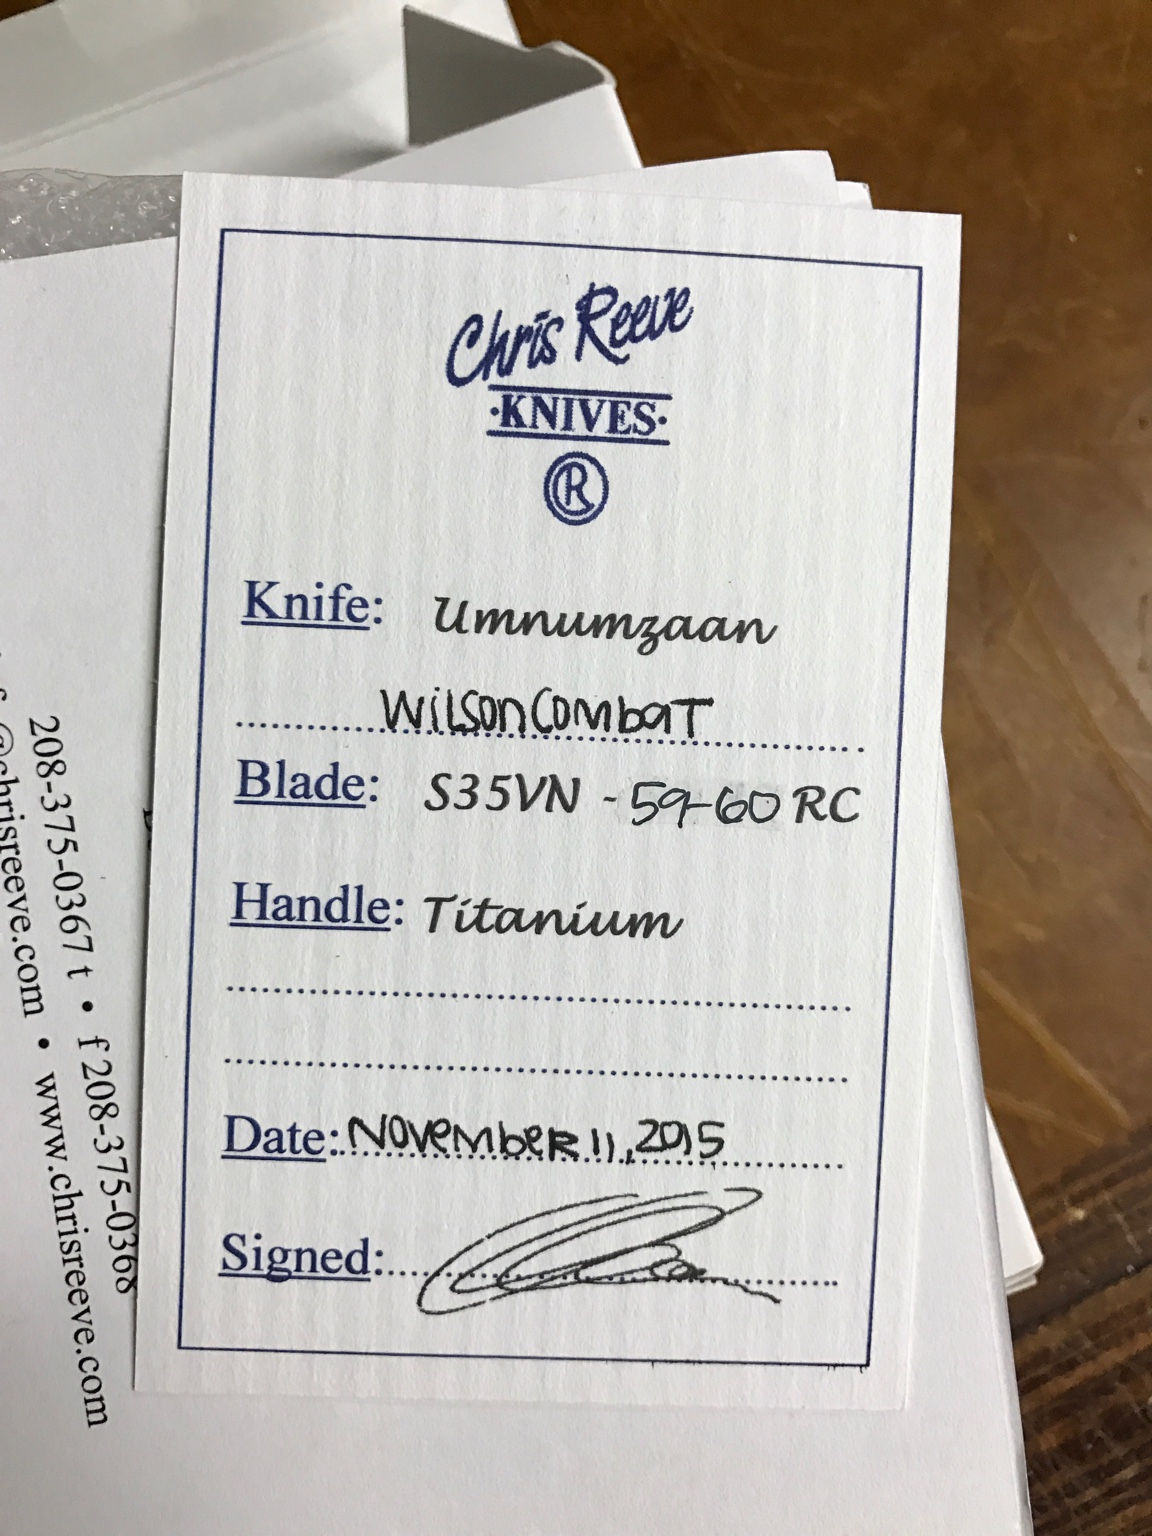 Chris Reeve
·KNIVES·
R
Knife: Umnumzaan
WilsonCombat
Blade: S35VN - 59-60 RC
Handle: Titanium
Date: November 11, 2015
Signed:
208-375-0367 t • f 208-375-0368
@chrisreeve.com • www.chrisreeve.com